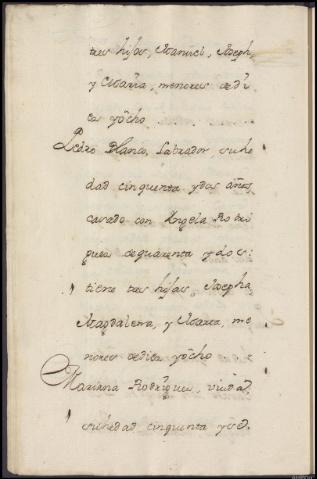 tres hijos, Manuel, Joseph,
y Maria, menores de di
ez y ocho
Pedro Blanco, Labrador, su he
dad cinquenta y dos años
casado con Angela Rodri
guez de quarenta y dos:
tiene tres hijas, Josepha
Magdalena, y Maria, me
nores de diez y ocho
Mariana Rodriguez, viuda
su hedad cinquenta y